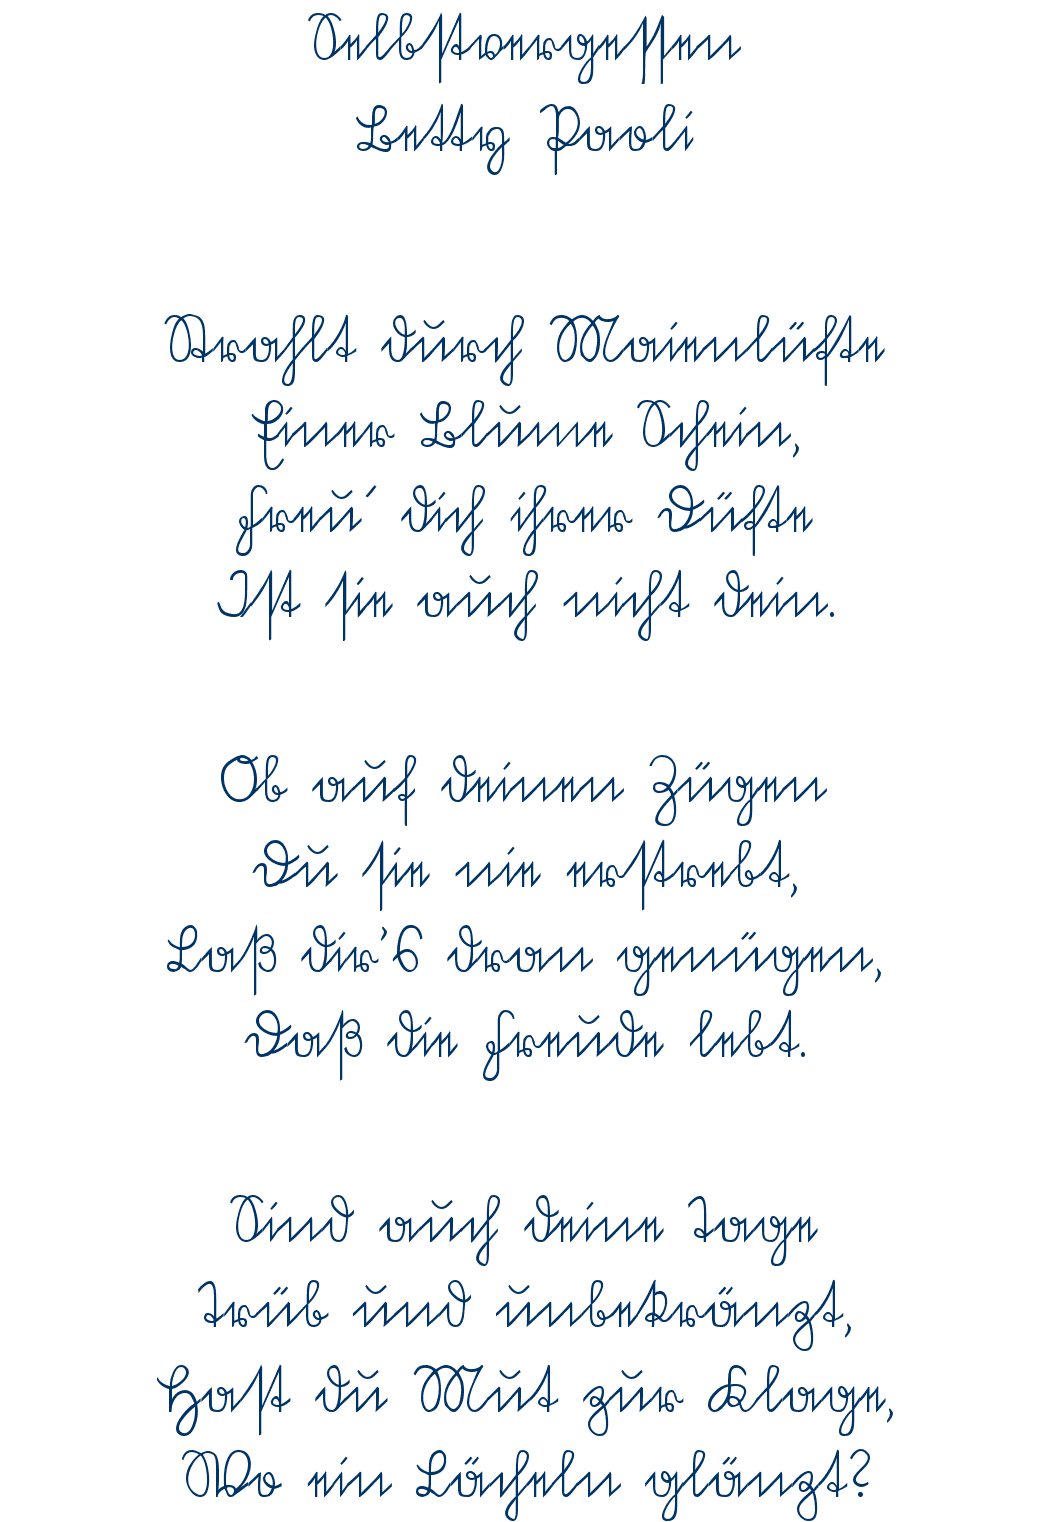 Selbstvergessen
Betty Paoli
Strahlt durch Maienlüfte
Einer Blume Schein,
Freu´ dich ihrer Düfte
Ist sie auch nicht dein.
Ob auf deinen Zügen
Du sie nie erstrebt,
Laß dir's dran genügen,
Daß die Freude lebt.
Sind auch deine Tage
Trüb und unbekränzt,
Hast du Mut zur Klage,
Wo ein Lächeln glänzt?